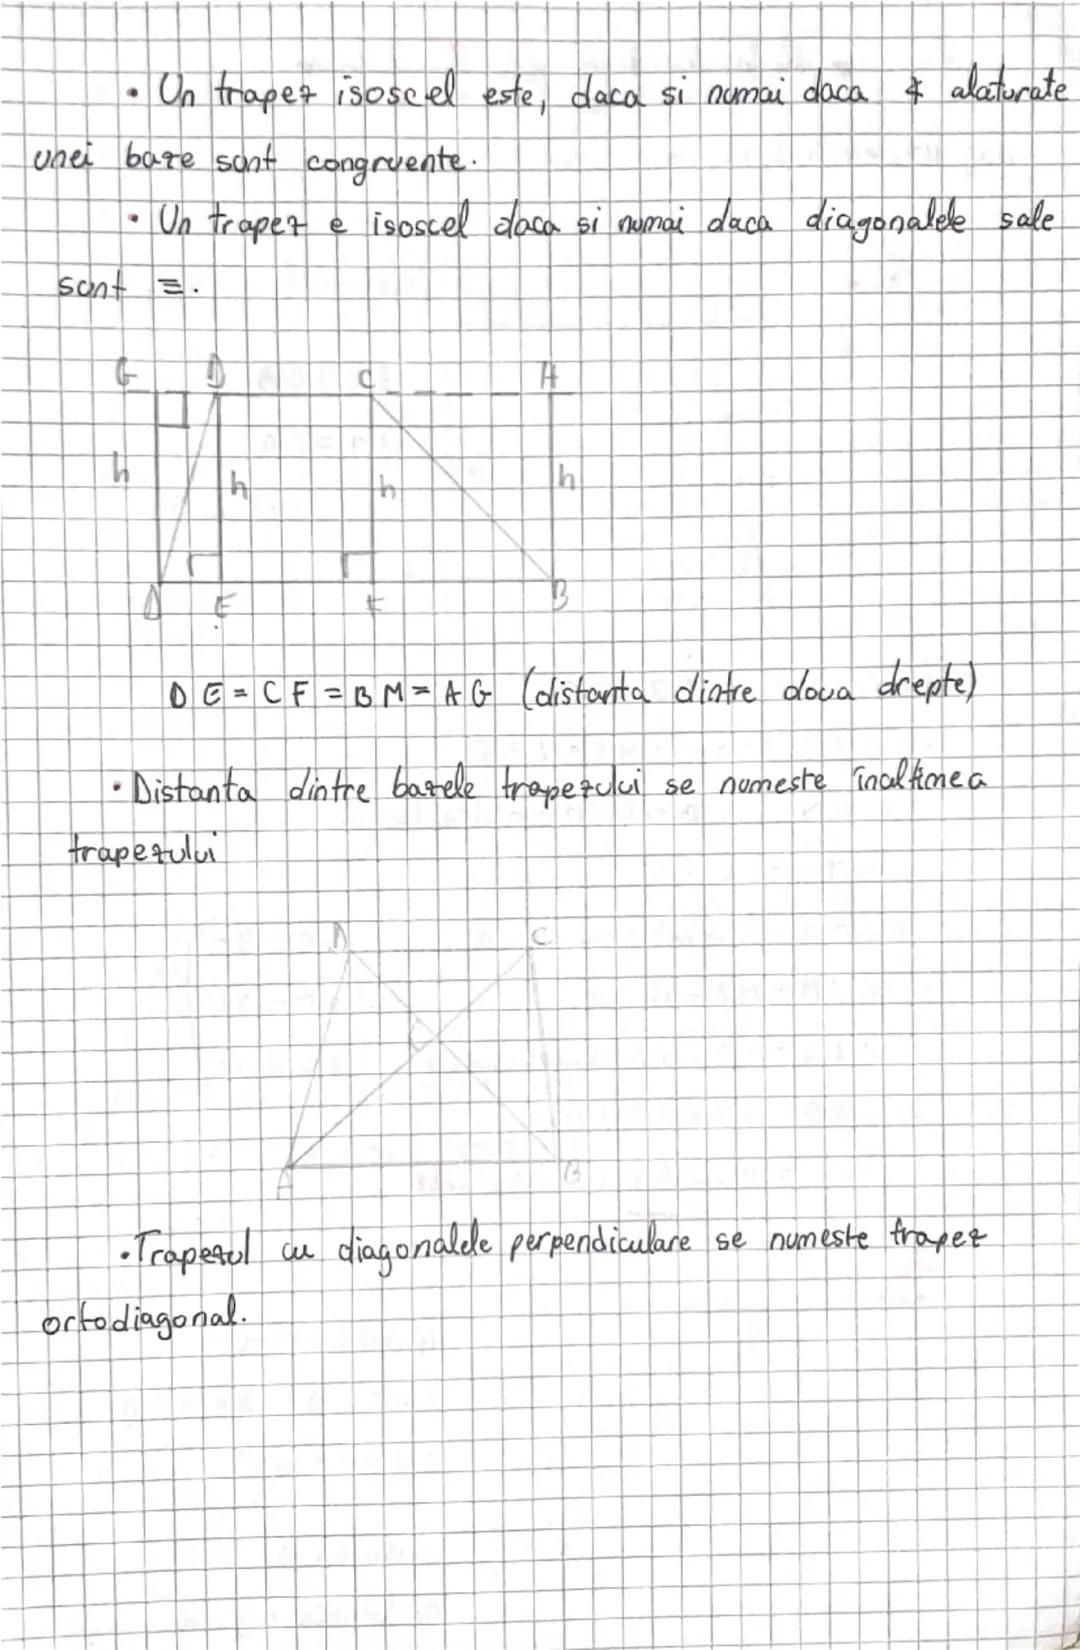 • Un trapez isoscel este, daca si numai daca ∢ alaturate
unei baze sunt congruente.
• Un trapez e isoscel daca si numai daca diagonalele sale
sunt ≡.
G D C
h h h h
E F B
D E = C F = B M = A G (distanta dintre doua drepte)
• Distanta dintre bazele trapezului se numeste înaltimea
trapezului
D C
A B
• Trapezul cu diagonalele perpendiculare se numeste trapez
ortodiagonal.